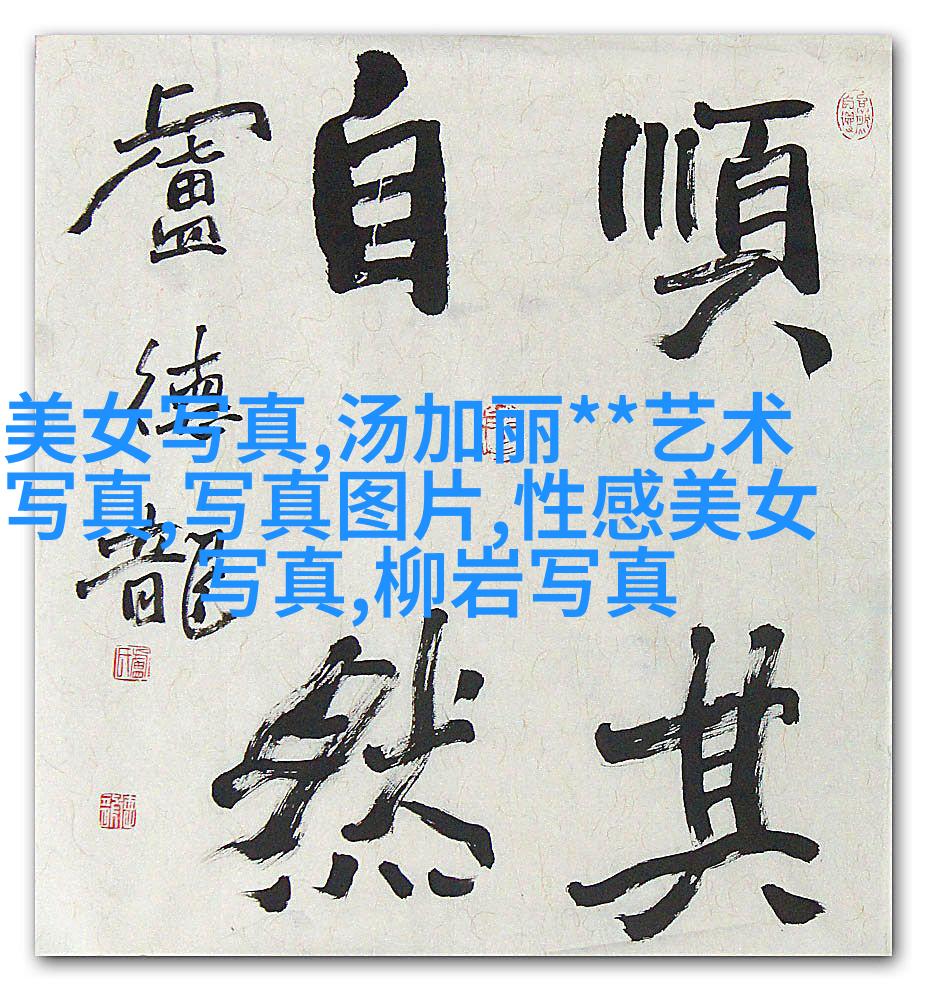 順其
自然
盧德龍
美女写真,汤加丽**艺术
写真,写真图片,性感美女
写真,柳岩写真